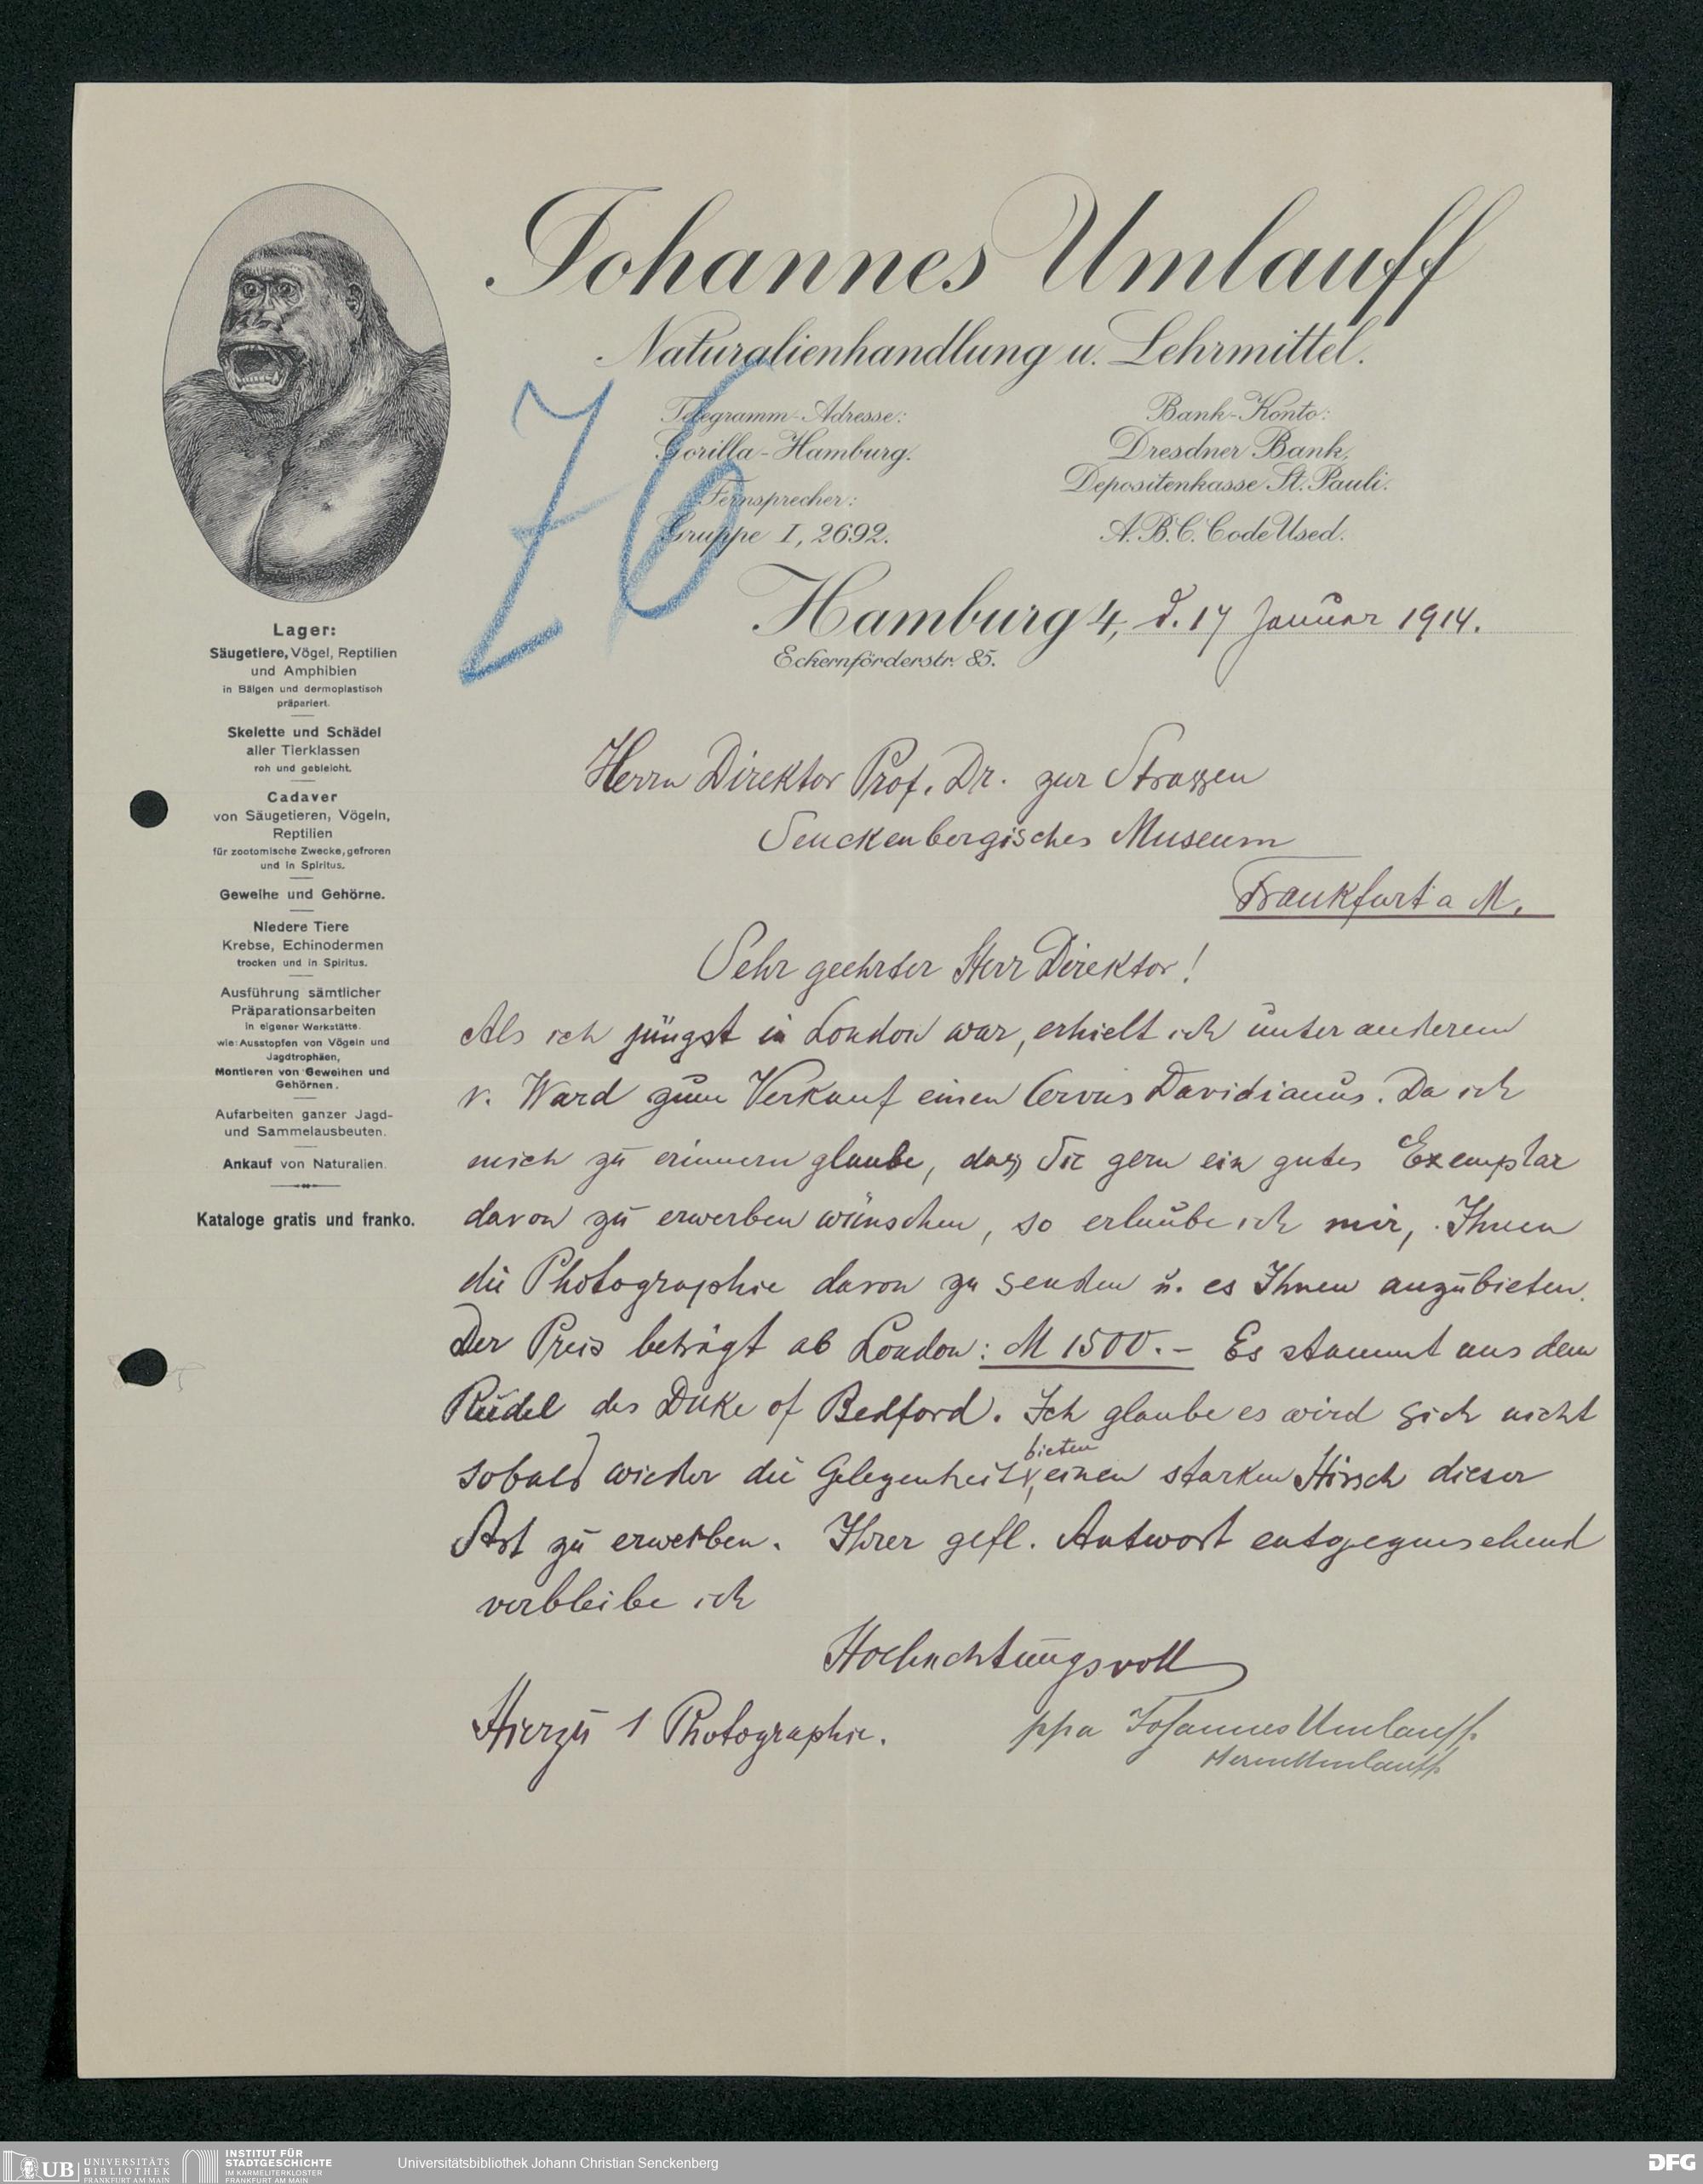 Johannes Umlauff
Naturalienhandlung u. Lehrmittel.
76
Telegramm-Adresse:
Gorilla-Hamburg.
Fernsprecher:
Gruppe I, 2692.
Bank-Konto:
Dresdner Bank,
Depositenkasse St. Pauli.
A.B.C. Code Used.
Hamburg 4, d. 17 Januar 1914.
Eckernförderstr. 85.
Lager:
Säugetiere, Vögel, Reptilien
und Amphibien
in Bälgen und dermoplastisch
präpariert.
Skelette und Schädel
aller Tierklassen
roh und gebleicht.
Cadaver
von Säugetieren, Vögeln,
Reptilien
für zootomische Zwecke, gefroren
und in Spiritus.
Geweihe und Gehörne.
Niedere Tiere
Krebse, Echinodermen
trocken und in Spiritus.
Ausführung sämtlicher
Präparationsarbeiten
in eigener Werkstätte.
wie: Ausstopfen von Vögeln und
Jagdtrophäen,
Montieren von Geweihen und
Gehörnen.
Aufarbeiten ganzer Jagd-
und Sammelausbeuten.
Ankauf von Naturalien.
Kataloge gratis und franko.
Herrn Direktor Prof. Dr. zur Strassen
Senckenbergisches Museum
Frankfurt a M.
Sehr geehrter Herr Direktor!
Als ich jüngst in London war, erhielt ich unter anderem
v. Ward zum Verkauf einen Cervus Davidianus. Da ich
mich zu erinnern glaube, dass Sie gern ein gutes Exemplar
davon zu erwerben wünschen, so erlaube ich mir, Ihnen
die Photographie davon zu senden u. es Ihnen anzubieten.
Der Preis beträgt ab London: M 1500.- Es stammt aus dem
Rudel des Duke of Bedford. Ich glaube es wird sich nicht
sobald wieder die Gelegenheit bieten, einen starken Hirsch dieser
Art zu erwerben. Ihrer gefl. Antwort entgegensehend
verbleibe ich
Hochachtungsvoll
Hierzu 1 Photographie.
ppa Johannes Umlauff.
Umlauff
UB UNIVERSITÄTS
BIBLIOTHEK
FRANKFURT AM MAIN
INSTITUT FÜR
STADTGESCHICHTE
IM KARMELITERKLOSTER
FRANKFURT AM MAIN
Universitätsbibliothek Johann Christian Senckenberg
DFG